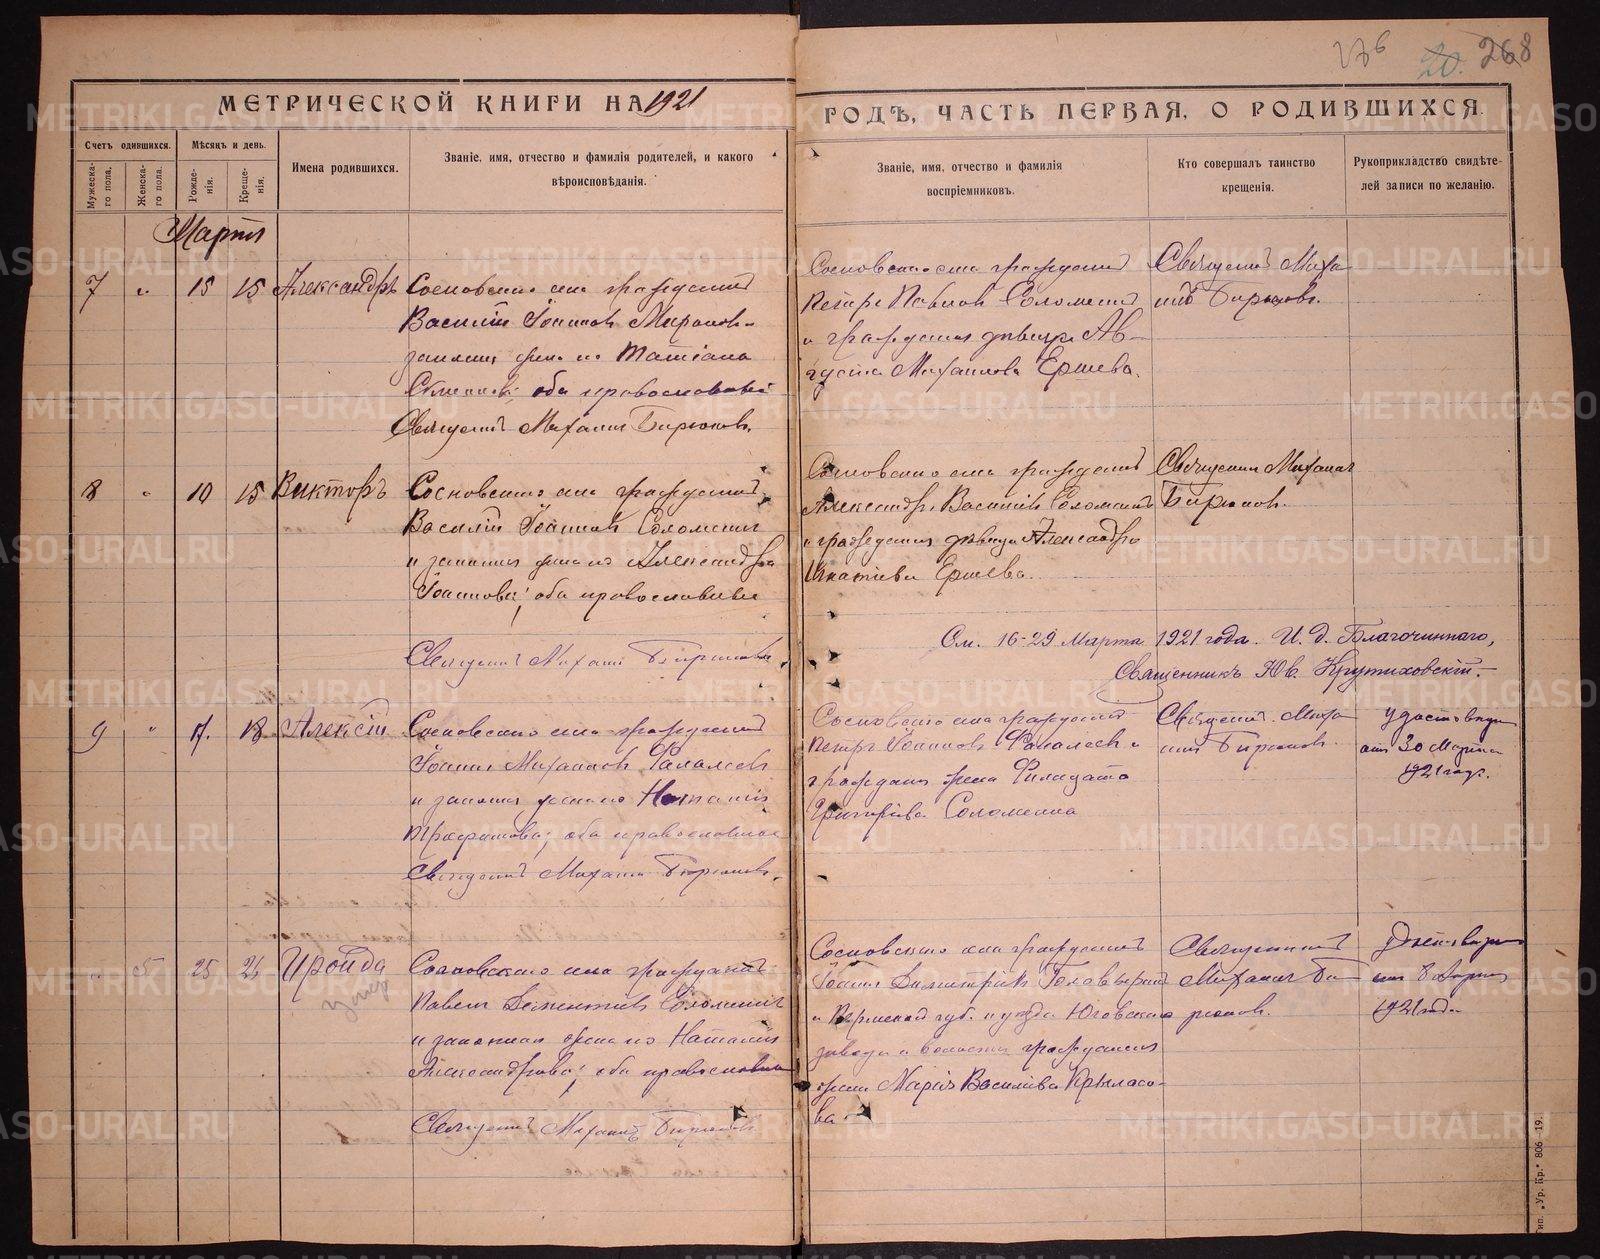 276 20. 268
МЕТРИЧЕСКОЙ КНИГИ НА 1921
ГОДЪ, ЧАСТЬ ПЕРВАЯ, О РОДИВШИХСЯ.
Счетъ одившихся.
Мѣсяцъ и день.
Имена родившихся.
Званіе, имя, отчество и фамилія родителей, и какого
вѣроисповѣданія.
Званіе, имя, отчество и фамилія
воспріемниковъ.
Кто совершалъ таинство
крещенія.
Рукоприкладство свидѣте-
лей записи по желанію.
Мужеска-
го пола.
Женска-
го пола.
Рожде-
нія.
Креще-
нія.
Мартъ
7 „ 15 15 Александръ
Сосновскаго села гражданинъ
Василій Іоанновъ Мироновъ
законная жена его Татіана
оба православные
Священникъ Михаилъ Бирюковъ.
Сосновскаго села гражданинъ
Петръ Павловъ Соломеинъ
и гражданка дѣвица Ав-
густа Михаилова Ершева.
Священникъ Миха
илъ Бирюковъ.
8 „ 10 15 Викторъ
Сосновскаго села гражданинъ
Василій Іоанновъ Соломеинъ
и законная жена его Александра
Іоаннова; оба православные
Священникъ Михаилъ Бирюковъ.
Сосновскаго села гражданинъ
Александръ Василіевъ Соломеинъ
и гражданка дѣвица Александра
Игнатіева Ершева.
Священникъ Михаилъ
Бирюковъ.
См. 16-29 Марта 1921 года. И. д. Благочиннаго,
Священникъ Юв. Крутиховскій.
9 „ 17. 18 Алексій
Сосновскаго села гражданинъ
Іоаннъ Михаиловъ Фалалеевъ
и законная жена его Наталія
Трофимова; оба православные
Священникъ Михаилъ Бирюковъ.
Сосновскаго села гражданинъ
Петръ Іоанновъ Фалалеевъ и
гражданка жена Филицата
Григорьева Соломеина
Священникъ Миха
илъ Бирюковъ.
30 Марта
1921 года.
„ 5 25 26 Ираида
умер
Сосновскаго села гражданинъ
Павелъ Дементіевъ Соломеинъ
и законная жена его Наталія
Александрова; оба православные
Священникъ Михаилъ Бирюковъ
Сосновскаго села гражданинъ
Іоаннъ Димитріевъ Головыринъ
и Пермской губ. и уѣзда Юговскаго
завода и волости гражданка
жена Марія Василіева Крыласо-
ва.
Священникъ
Михаилъ Би-
рюковъ.
1921 года
Тип. „Ур. Кр.“ 806—19.
METRIKI.GASO-URAL.RU